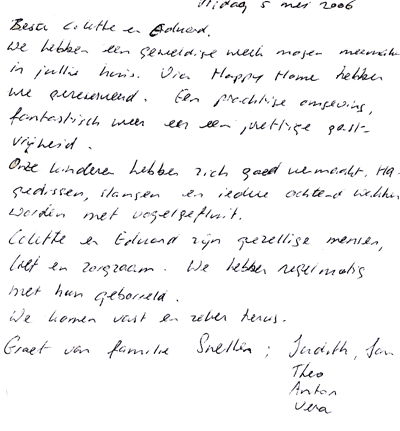 Vrijdag 5 mei 2006
Beste Colette en Eduard,
We hebben een geweldige week mogen meemaken
in jullie huis. Via Happy Home hebben
we gereserveerd. Een prachtige omgeving,
fantastisch weer en een prettige gast-
vrijheid.
Onze kinderen hebben zich goed vermaakt. Ha-
gedissen, slangen en iedere ochtend wakker
worden met vogelgefluit.
Colette en Eduard zijn gezellige mensen,
lief en zorgzaam. We hebben regelmatig
met hun geborreld.
We komen vast en zeker terug.
Groet van familie Snellen; Judith, Jan
Theo
Anton
Vera